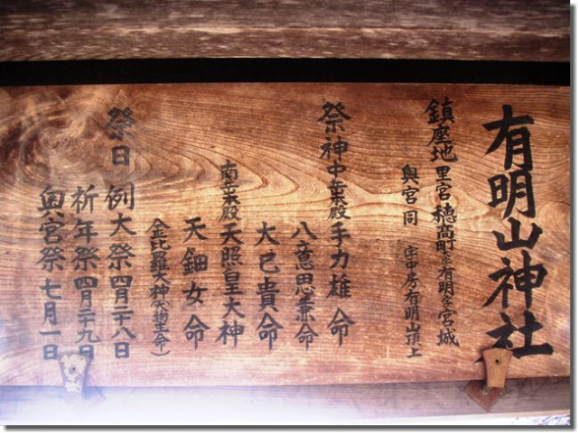 有明山神社
鎮座地 里宮 穂高町 有明 宮城
奥宮 同 字中房有明山頂上
祭神 中葉殿 手力雄命
八意思兼命
大己貴命
南葉殿 天照皇大神
天鈿女命
(金比羅大神 命)
祭日 例大祭 四月二十八日
祈年祭 四月二十九日
奥宮祭 七月一日